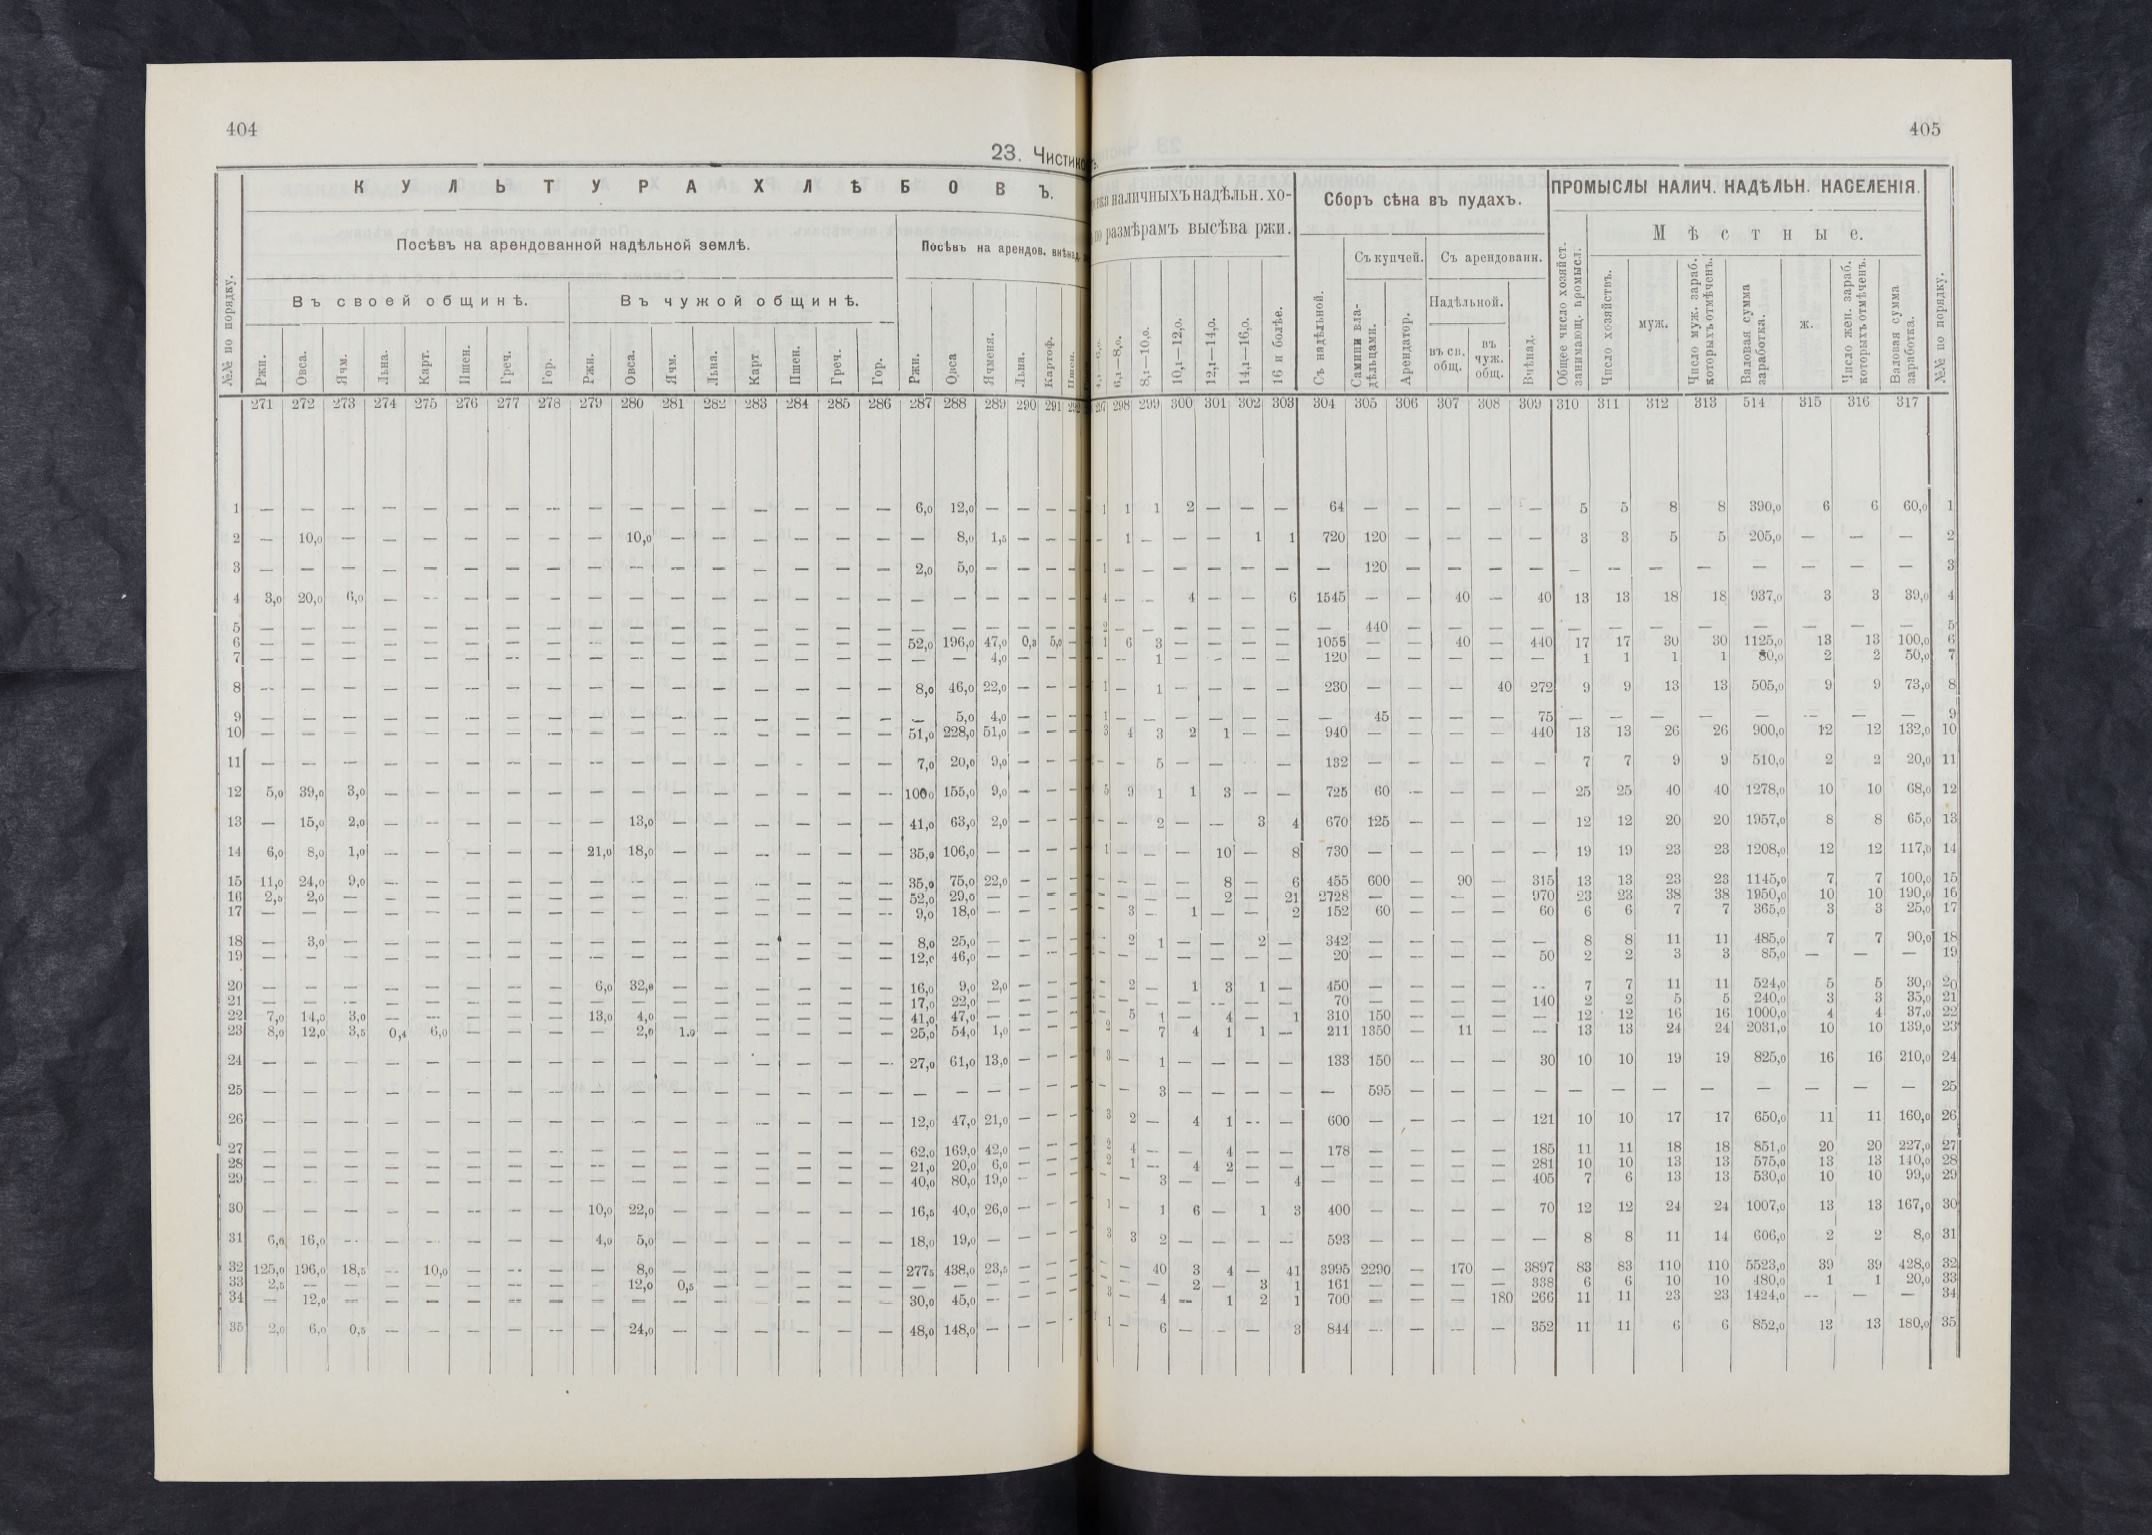 404
23. Чистико
КУЛЬТУРА ХЛѢБОВЪ.
Посѣвъ на арендованной надѣльной землѣ.
Посѣвъ на арендов. внѣнад.
Въ своей общинѣ.
Въ чужой общинѣ.
№№ по порядку. Ржи. Овса. Ячм. Льна. Карт. Пшен. Греч. Гор. Ржи. Овса. Ячм. Льна. Карт. Пшен. Греч. Гор. Ржи. Овса Ячменя. Льна. Картоф. Пшен.
271 272 273 274 275 276 277 278 279 280 281 282 283 284 285 286 287 288 289 290 291 292
1 — — — — — — — — — — — — — — — — 6,0 12,0 — — — —
2 — 10,0 — — — — — — — 10,0 — — — — — — — 8,0 1,5 — — —
3 — — — — — — — — — — — — — — — — 2,0 5,0 — — — —
4 3,0 20,0 6,0 — — — — — — — — — — — — — — — — — — —
5 — — — — — — — — — — — — — — — — — — — — — —
6 — — — — — — — — — — — — — — — — 52,0 196,0 47,0 0,3 5,0 —
7 — — — — — — — — — — — — — — — — — — 4,0 — — —
8 — — — — — — — — — — — — — — — — 8,0 46,0 22,0 — — —
9 — — — — — — — — — — — — — — — — — 5,0 4,0 — — —
10 — — — — — — — — — — — — — — — — 51,0 228,0 51,0 — — —
11 — — — — — — — — — — — — — — — — 7,0 20,0 9,0 — — —
12 5,0 39,0 3,0 — — — — — — — — — — — — — 100,0 155,0 9,0 — — —
13 — 15,0 2,0 — — — — — — 13,0 — — — — — — 41,0 63,0 2,0 — — —
14 6,0 8,0 1,0 — — — — — 21,0 18,0 — — — — — — 35,0 106,0 — — — —
15 11,0 24,0 9,0 — — — — — — — — — — — — — 35,0 75,0 22,0 — — —
16 2,5 2,0 — — — — — — — — — — — — — — 52,0 29,0 — — — —
17 — — — — — — — — — — — — — — — — 9,0 18,0 — — — —
18 — 3,0 — — — — — — — — — — — — — — 8,0 25,0 — — — —
19 — — — — — — — — — — — — — — — — 12,0 46,0 — — — —
20 — — — — — — — — 6,0 32,0 — — — — — — 16,0 9,0 2,0 — — —
21 — — — — — — — — — — — — — — — — 17,0 22,0 — — — —
22 7,0 14,0 3,0 — — — — — 13,0 4,0 — — — — — — 41,0 47,0 — — — —
23 8,0 12,0 3,5 0,4 6,0 — — — — 2,0 1,0 — — — — — 25,0 54,0 1,0 — — —
24 — — — — — — — — — — — — — — — — 27,0 61,0 13,0 — — —
25 — — — — — — — — — — — — — — — — — — — — — —
26 — — — — — — — — — — — — — — — — 12,0 47,0 21,0 — — —
27 — — — — — — — — — — — — — — — — 62,0 169,0 42,0 — — —
28 — — — — — — — — — — — — — — — — 21,0 20,0 6,0 — — —
29 — — — — — — — — — — — — — — — — 40,0 80,0 19,0 — — —
30 — — — — — — — — 10,0 22,0 — — — — — — 16,5 40,0 26,0 — — —
31 6,0 16,0 — — — — — — 4,0 5,0 — — — — — — 18,0 19,0 — — — —
32 125,0 196,0 18,5 — 10,0 — — — — 8,0 — — — — — — 277,5 438,0 23,5 — — —
33 2,5 — — — — — — — — 12,0 0,5 — — — — — — — — — — —
34 — 12,0 — — — — — — — — — — — — — — 30,0 45,0 — — — —
35 2,0 6,0 0,5 — — — — — — 24,0 — — — — — — 48,0 148,0 — — — —
405
наличныхъ надѣльн. хо-
по размѣрамъ высѣва ржи.
Сборъ сѣна въ пудахъ.
ПРОМЫСЛЫ НАЛИЧ. НАДѢЛЬН. НАСЕЛЕНІЯ.
Мѣстные.
Съ купчей. Съ арендованн.
Надѣльной.
6,1—8,0. 8,1—10,0. 10,1—12,0. 12,1—14,0. 14,1—16,0. 16 и болѣе. Съ надѣльной. Самими вла-дѣльцами. Арендатор. въ св. общ. въ чуж. общ. Внѣнад. Общее число хозяйст. занимающ. промысл. Число хозяйствъ. муж. Число муж. зараб. которыхъ отмѣченъ. Валовая сумма заработка. ж. Число жен. зараб. которыхъ отмѣченъ. Валовая сумма заработка. №№ по порядку.
297 298 299 300 301 302 303 304 305 306 307 308 309 310 311 312 313 514 315 316 317
1 1 1 2 — — — 64 — — — — — 5 5 8 8 390,0 6 6 60,0 1
— 1 — — — 1 1 720 120 — — — — 3 3 5 5 205,0 — — — 2
1 — — — — — — — 120 — — — — — — — — — — — — 3
4 — — 4 — — 6 1545 — — 40 — 40 13 13 18 18 937,0 3 3 39,0 4
2 — — — — — — — 440 — — — — — — — — — — — — 5
1 6 3 — — — — 1055 — — 40 — 440 17 17 30 30 1125,0 13 13 100,0 6
— — 1 — — — — 120 — — — — — 1 1 1 1 80,0 2 2 50,0 7
1 — 1 — — — — 230 — — — 40 272 9 9 13 13 505,0 9 9 73,0 8
1 — — — — — — — 45 — — — 75 — — — — — — — — 9
3 4 3 2 1 — — 940 — — — — 440 13 13 26 26 900,0 12 12 132,0 10
— — 5 — — — — 132 — — — — — 7 7 9 9 510,0 2 2 20,0 11
5 9 1 1 3 — — 725 60 — — — — 25 25 40 40 1278,0 10 10 68,0 12
— — 2 — — 3 4 670 125 — — — — 12 12 20 20 1957,0 8 8 65,0 13
1 — — — 10 — 8 730 — — — — — 19 19 23 23 1208,0 12 12 117,0 14
— — — — 8 — 6 455 600 — 90 — 315 13 13 23 23 1145,0 7 7 100,0 15
— — — — 2 — 21 2728 — — — — 970 23 23 38 38 1950,0 10 10 190,0 16
— 3 — 1 — — 2 152 60 — — — 60 6 6 7 7 365,0 3 3 25,0 17
— 2 1 — — 2 — 342 — — — — — 8 8 11 11 485,0 7 7 90,0 18
— — — — — — — 20 — — — — 50 2 2 3 3 85,0 — — — 19
— 2 — 1 3 1 — 450 — — — — — 7 7 11 11 524,0 5 5 30,0 20
— — — — — — — 70 — — — — 140 2 2 5 5 240,0 3 3 35,0 21
— 5 1 — 4 — 1 310 150 — — — — 12 12 16 16 1000,0 4 4 37,0 22
2 — 7 4 1 1 — 211 1350 — 11 — — 13 13 24 24 2031,0 10 10 139,0 23
3 — 1 — — — — 133 150 — — — 30 10 10 19 19 825,0 16 16 210,0 24
— — 3 — — — — — 595 — — — — — — — — — — — — 25
3 2 — 4 1 — — 600 — — — — 121 10 10 17 17 650,0 11 11 160,0 26
2 4 — — 4 — — 178 — — — — 185 11 11 18 18 851,0 20 20 227,0 27
2 1 — 4 2 — — — — — — — 281 10 10 13 13 575,0 13 13 140,0 28
— — 3 — — — 4 — — — — — 405 7 6 13 13 530,0 10 10 99,0 29
1 — 1 6 — 1 3 400 — — — — 70 12 12 24 24 1007,0 13 13 167,0 30
3 3 2 — — — — 593 — — — — — 8 8 11 14 606,0 2 2 8,0 31
— — 40 3 4 — 41 3995 2290 — 170 — 3897 83 83 110 110 5523,0 39 39 428,0 32
— — — 2 — 3 1 161 — — — — 338 6 6 10 10 480,0 1 1 20,0 33
3 — 4 — 1 2 1 700 — — — 180 266 11 11 23 23 1424,0 — — — 34
1 — 6 — — — 3 844 — — — — 352 11 11 6 6 852,0 13 13 180,0 35